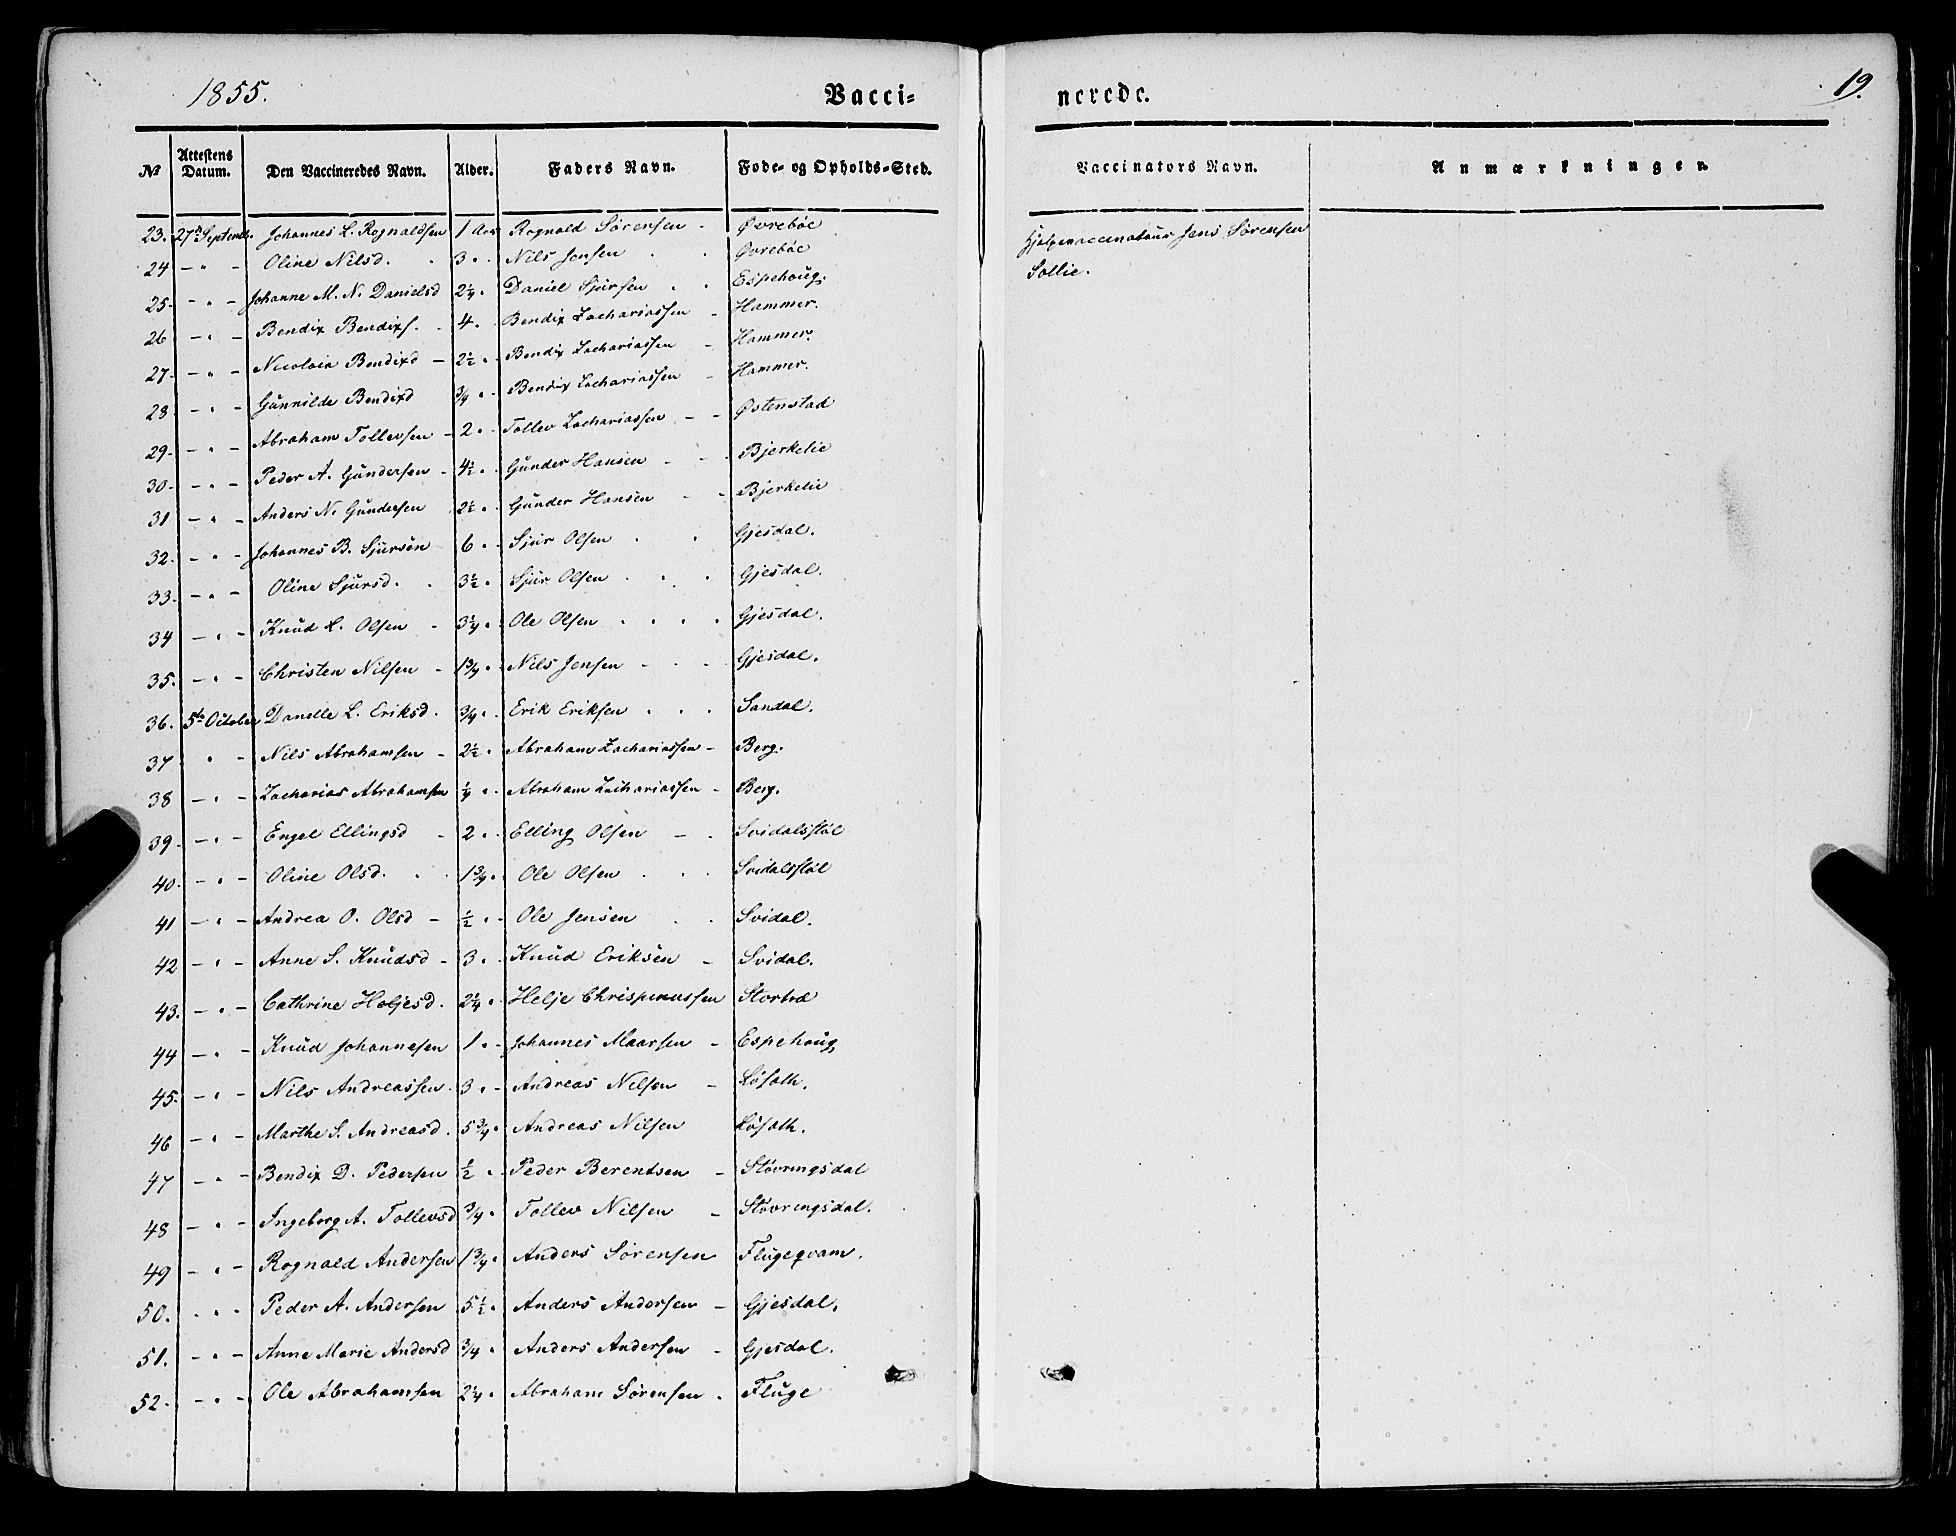 1855.
Vacci-
nerede.
19.
№ Attestens Datum. Den Vaccineredes Navn. Alder. Faders Navn. Føde- og Opholds-Sted. Vaccinators Navn. Anmærkninger.
23. 27de Septemb. Johannes L. Rognaldsen 1 Aar Rognald Sørensen Øvrebøe Hjelpevaccinateur Jens Sørensen
Sollie.
24 - " - Oline Nilsd. 3 " Nils Jensen Øvrebøe
25 - " - Johanne M. N. Danielsd 2¼ " Daniel Sjursen Espehoug.
26 - " - Bendix Bendixs. 4 " Bendix Zachariassen Hammer.
27 - " - Nicolaia Bendixd 2½ " Bendix Zachariassen Hammer.
28 - " - Gunnilde Bendixd ¾ " Bendix Zachariassen Hammer.
29 - " - Abraham Tollevsen 2 " Tollev Zachariassen Østenstad
30 - " - Peder A. Gundersen 4½ " Gunder Hansen Bjerkelie
31 - " - Anders N. Gundersen 2½ " Gunder Hansen Bjerkelie
32 - " - Johannes B. Sjursen 6 " Sjur Olsen Gjesdal.
33 - " - Oline Sjursd. 3½ " Sjur Olsen Gjesdal.
34 - " - Knud L. Olsen 3¼ " Ole Olsen Gjesdal.
35. - " - Christen Nilsen 1¾ " Nils Jensen Gjesdal.
36. 5te October Danelle L. Eriksd. ¾ " Erik Eriksen Sandal.
37 " - Nils Abrahamsen 2½ " Abraham Zachariassen Berg.
38 - " - Zacharias Abrahamsen ¼ " Abraham Zachariassen Berg.
39 - " - Engel Ellingsd 2 " Elling Olsen Svidalsstøl
40 - " - Oline Olsd. 1¾ " Ole Olsen Svidalsstøl
41 - " - Andrea O. Olsd ½ " Ole Jensen Svidal.
42 - " - Anne S. Knudsd 3 " Knud Eriksen Svidal.
43. - " - Cathrine Heljesd. 2¼ " Helje Chrispinussen Storbræ
44 - " - Knud Johannesen 1 " Johannes Maarsen Espehoug
45. - " - Nils Andreassen 3 " Andreas Nilsen Løfalh.
46 - " - Marthe S. Andreasd. 5¾ " Andreas Nilsen Løfalh.
47 - " - Bendix D. Pedersen ½ " Peder Berentsen Støvringsdal
48 - " - Ingeborg A. Tollevsd ¾ " Tollev Nilsen Støvringsdal.
49 - " - Rognald Andersen 1¾ " Anders Sørensen Flugeqvam.
50. - " - Peder A. Andersen 5½ " Anders Andersen Gjesdal.
51. - " - Anne Marie Andersd ¾ " Anders Andersen Gjesdal.
52. - " - Ole Abrahamsen 2¼ " Abraham Sørensen Fluge